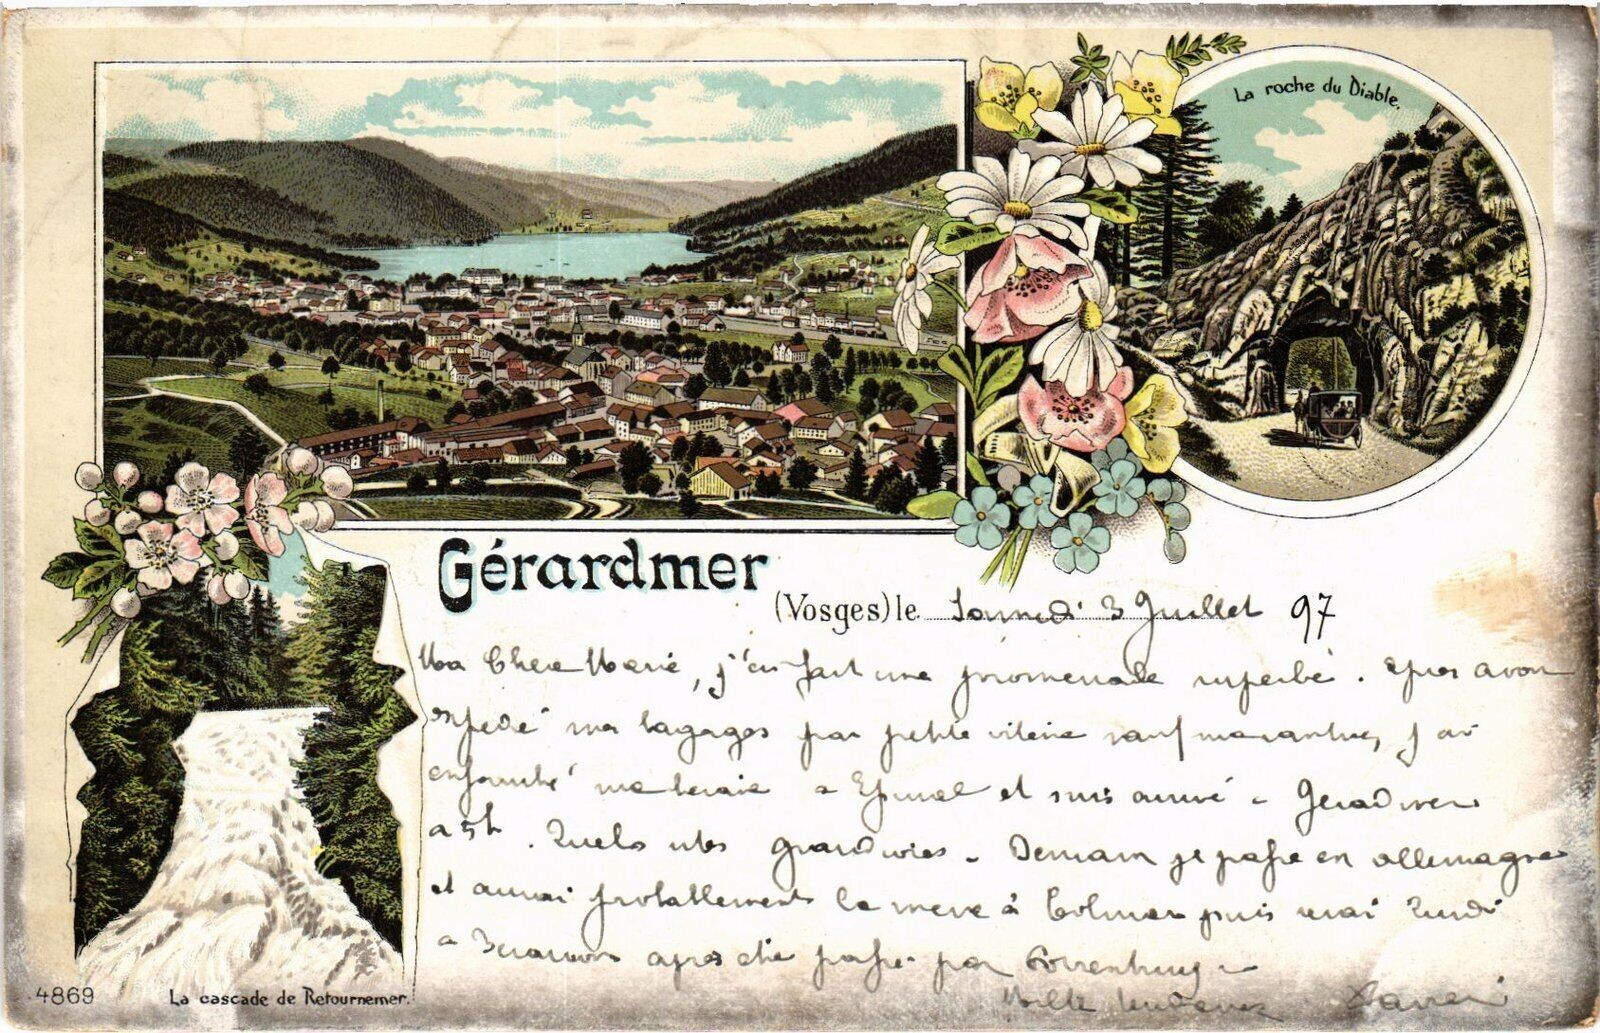 La roche du Diable.
Gérardmer
(Vosges) le Samedi 3 Juillet 97
Ma Chere Marie, j'ai fait une promenade superbe. Apres avoir
expedié mes bagages par petite vitesse sauf ma
enfourché ma a Epinal et suis arrivé a Gerardmer
a 5h. Quels sites grandioses. Demain je passe en allemagne
et aurai probablement la messe à Colmar puis serai Lundi
a apres être passé par Porrentruy
Mille tendresses Xavier
4869
La cascade de Retournemer.